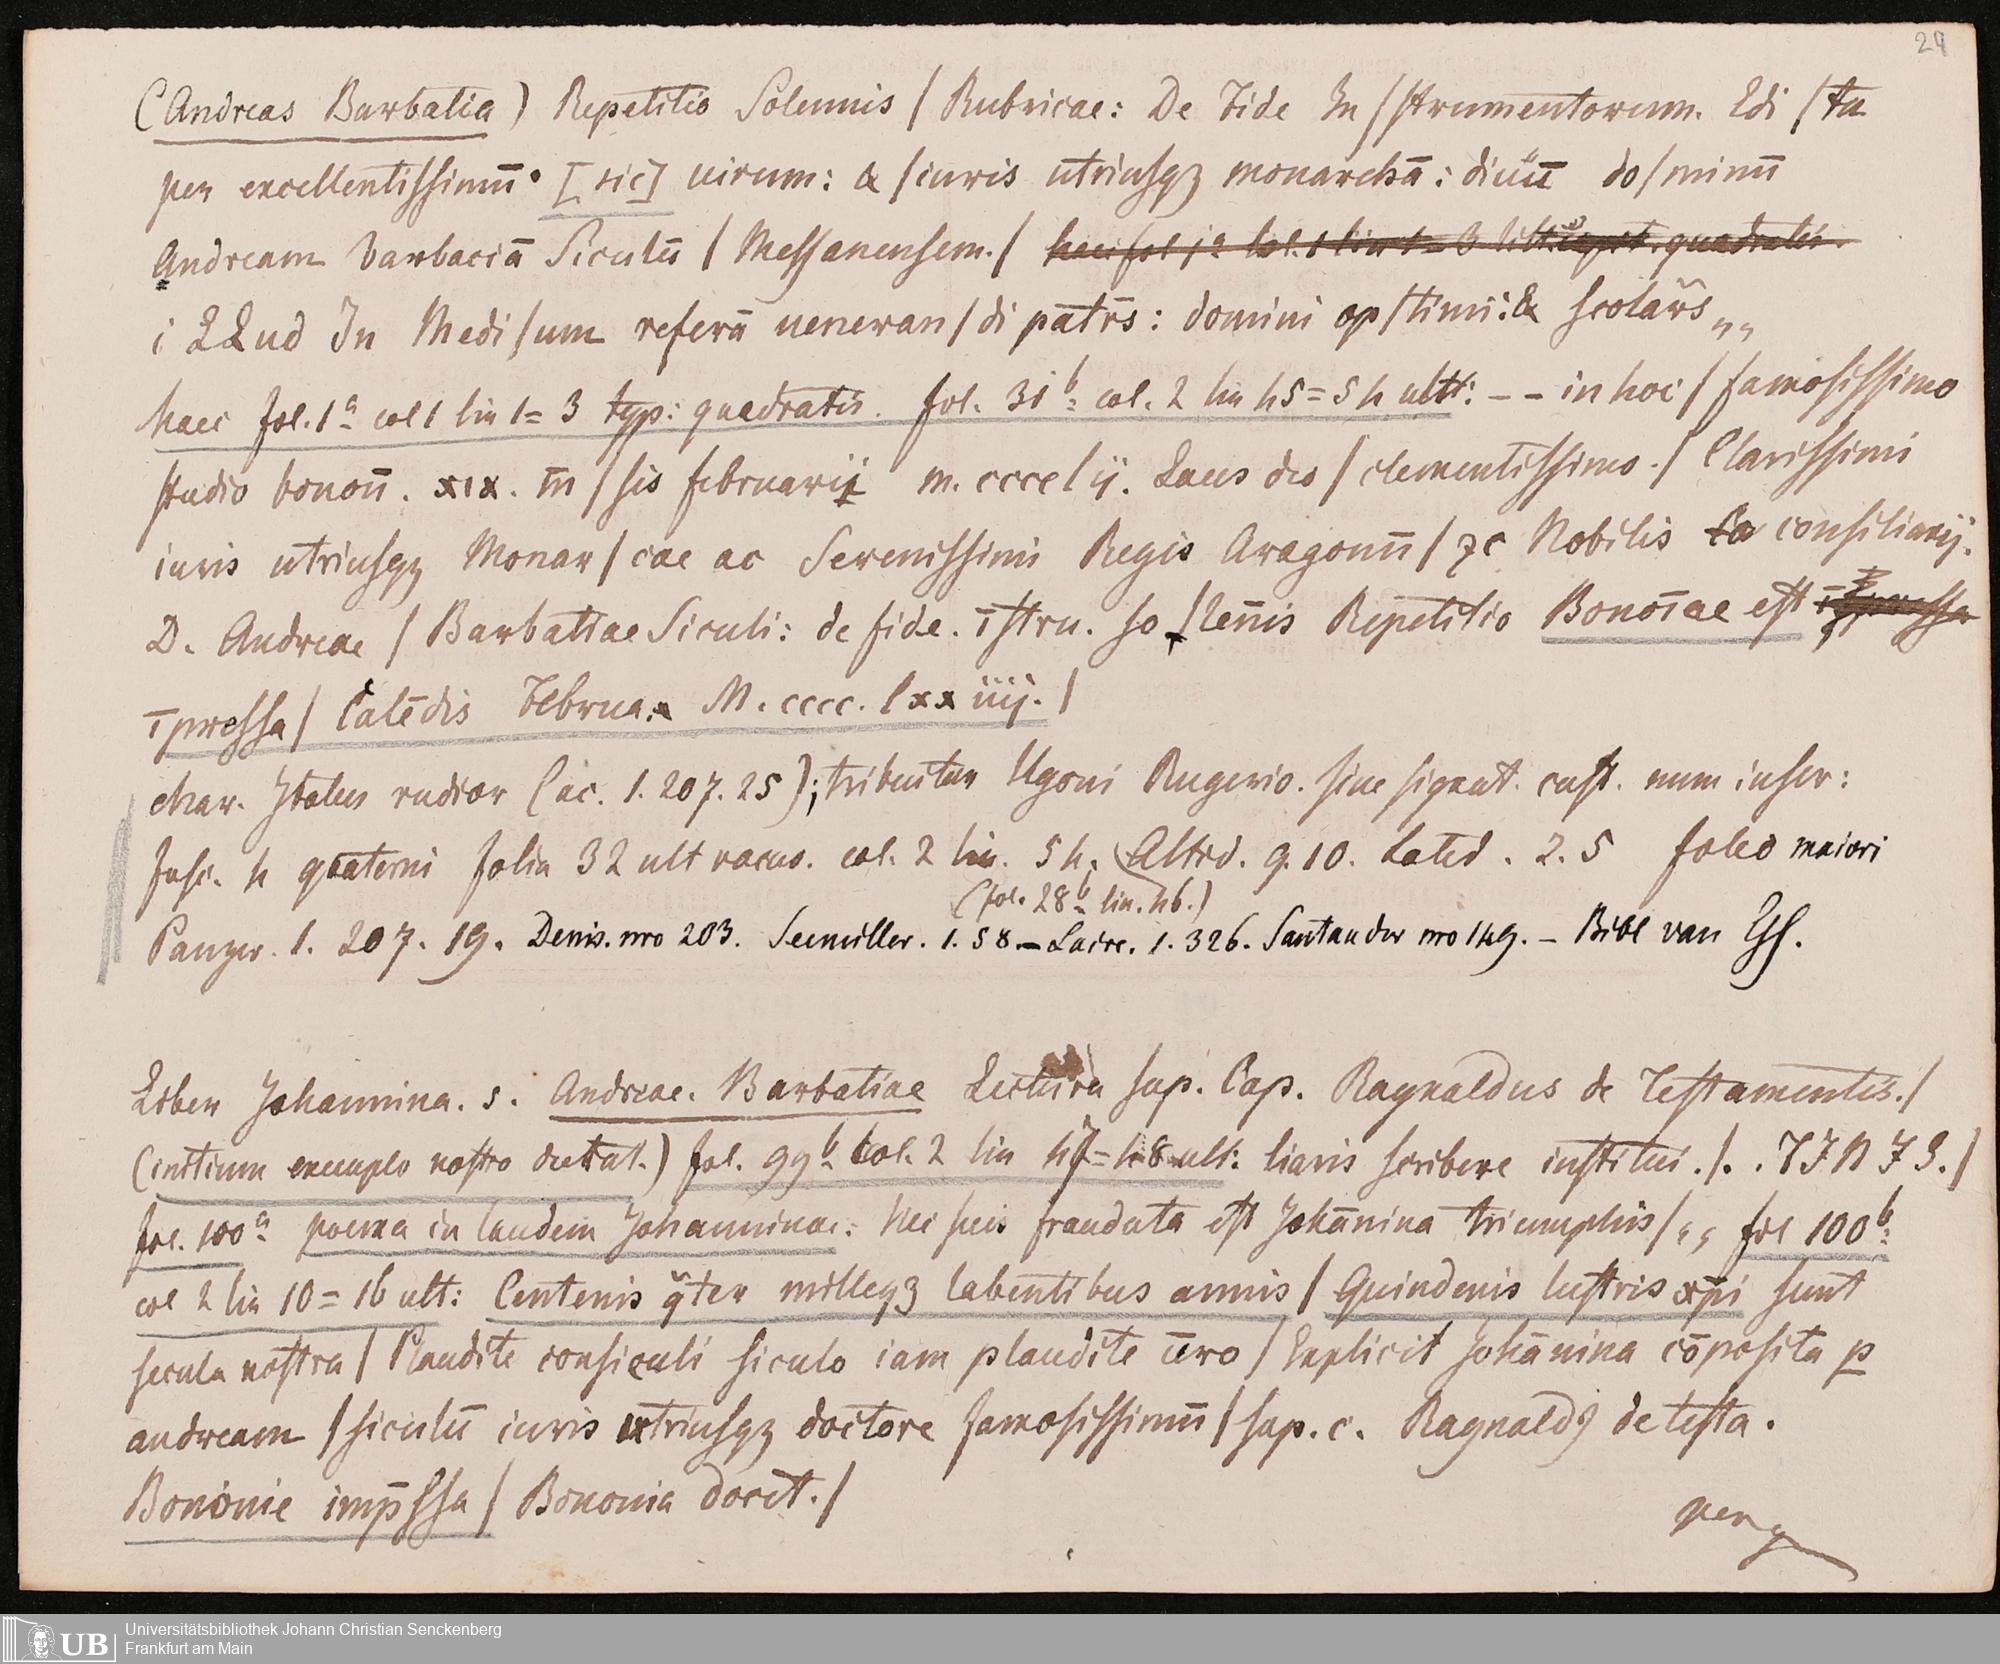 29
(Andreas Barbatia) Repetitio Solennis / Rubricae: De Fide In / strumentorum. Edi / ta
per excellentissimū. [sic] uirum: & / iuris utriusqꝫ monarchā: diuū do / minū
Andream barbaciā Siculū / Messanensem. /
i LLud In Medi / um referā ueneran / di patr̄s: domini op / timi: & scolar̄s „
haec fol. 1ª col 1 lin 1 = 3 typ: quadratis. fol. 31ᵇ col. 2 lin 45 = 54 ult: – – in hoc / famosissimo
studio bonoñ. xix. m̄ / sis februarij m. cccc l ij. Laus deo / clementissimo. / Clarissimi
iuris utriusqꝫ Monar / cae ac Serenissimi Regis Aragonū / ⁊c Nobilis consiliarij.
D. Andreae / Barbatiae Siculi: de fide. īstru. so / len̄is Repetitio Bonōiae est
īpressa / Calēdis Februa. M. cccc. lxx iiij. /
char. Italus rudior (ac. 1. 207. 25); tribuitur Ugoni Rugerio. sine signat. cust. num inscr:
fasc. 4 quaterni folia 32 ult vacuo. col. 2 lin. 54. Altid. 9. 10. Latid. 2. 5 folio maiori
(fol. 28ᵇ lin. 46.)
Panzer. 1. 207. 19. Denis. nro 203. Seemiller. 1. 58. – Laire. 1. 326. Santander nro 149. – Bibl van Eſſ.
Liber Johannina. s. Andreae. Barbatiae Lectura sup. Cap. Raynaldus de Testamentis. /
(initium exemplo nostro deerat.) fol. 99ᵇ col. 2 lin 47 = 48 ult: liaris scribere institui. /. . FINIS. /
fol. 100ª poema in laudem Johanninae: Nec suis fraudata est Johānina triumphis / „ fol 100ᵇ
col 2 lin 10 = 16 ult: Centenis q̃ter milleqꝫ labentibus annis / Quindenis lustris xp̄i sunt
secula nostra / Plaudite consiculi siculo iam plaudite ūero / Explicit Johānina cōposita p
andream / siculū iuris utriusqꝫ doctore famosissimū / sup. c. Raynald9 de testa.
Bononie imp̄ssa / Bononia docet. /
perg
Universitätsbibliothek Johann Christian Senckenberg
Frankfurt am Main
UB